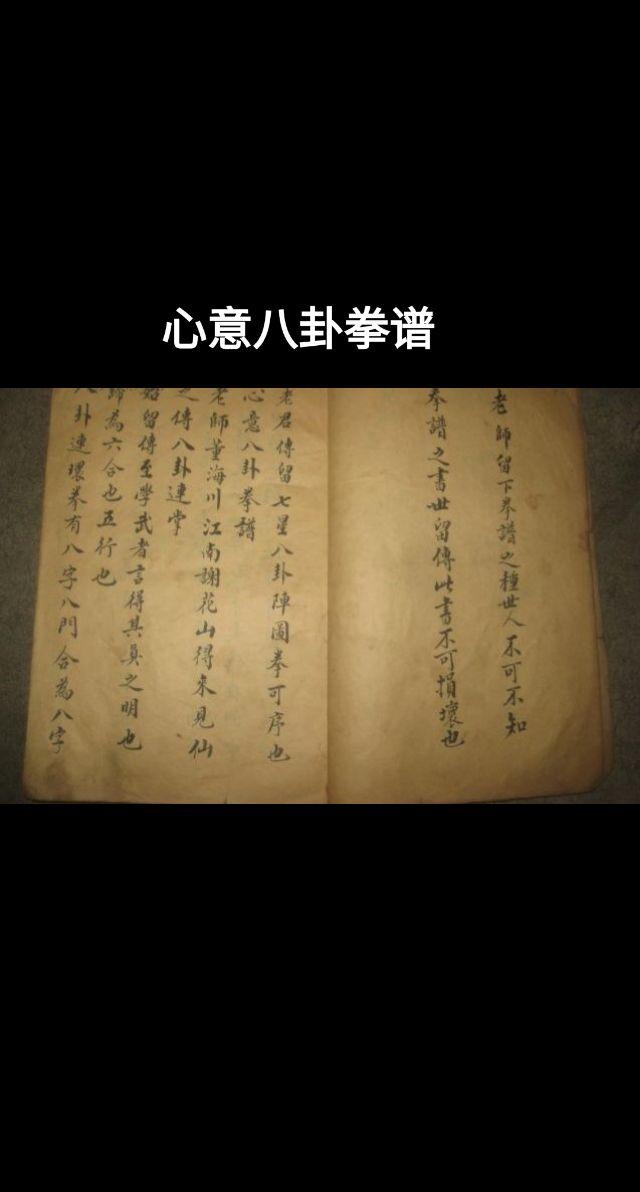 心意八卦拳谱
老師留下拳譜之種世人不可不知
拳譜之書世留傳此書不可損壞也
老君傳留七星八卦陣圖拳可序也
心意八卦拳譜
老師董海川江南謝花山得來見仙
之傳八卦連掌
始留傳至學武者言得其真之明也
歸為六合也五行也
八卦連環拳有八字八門合為八字